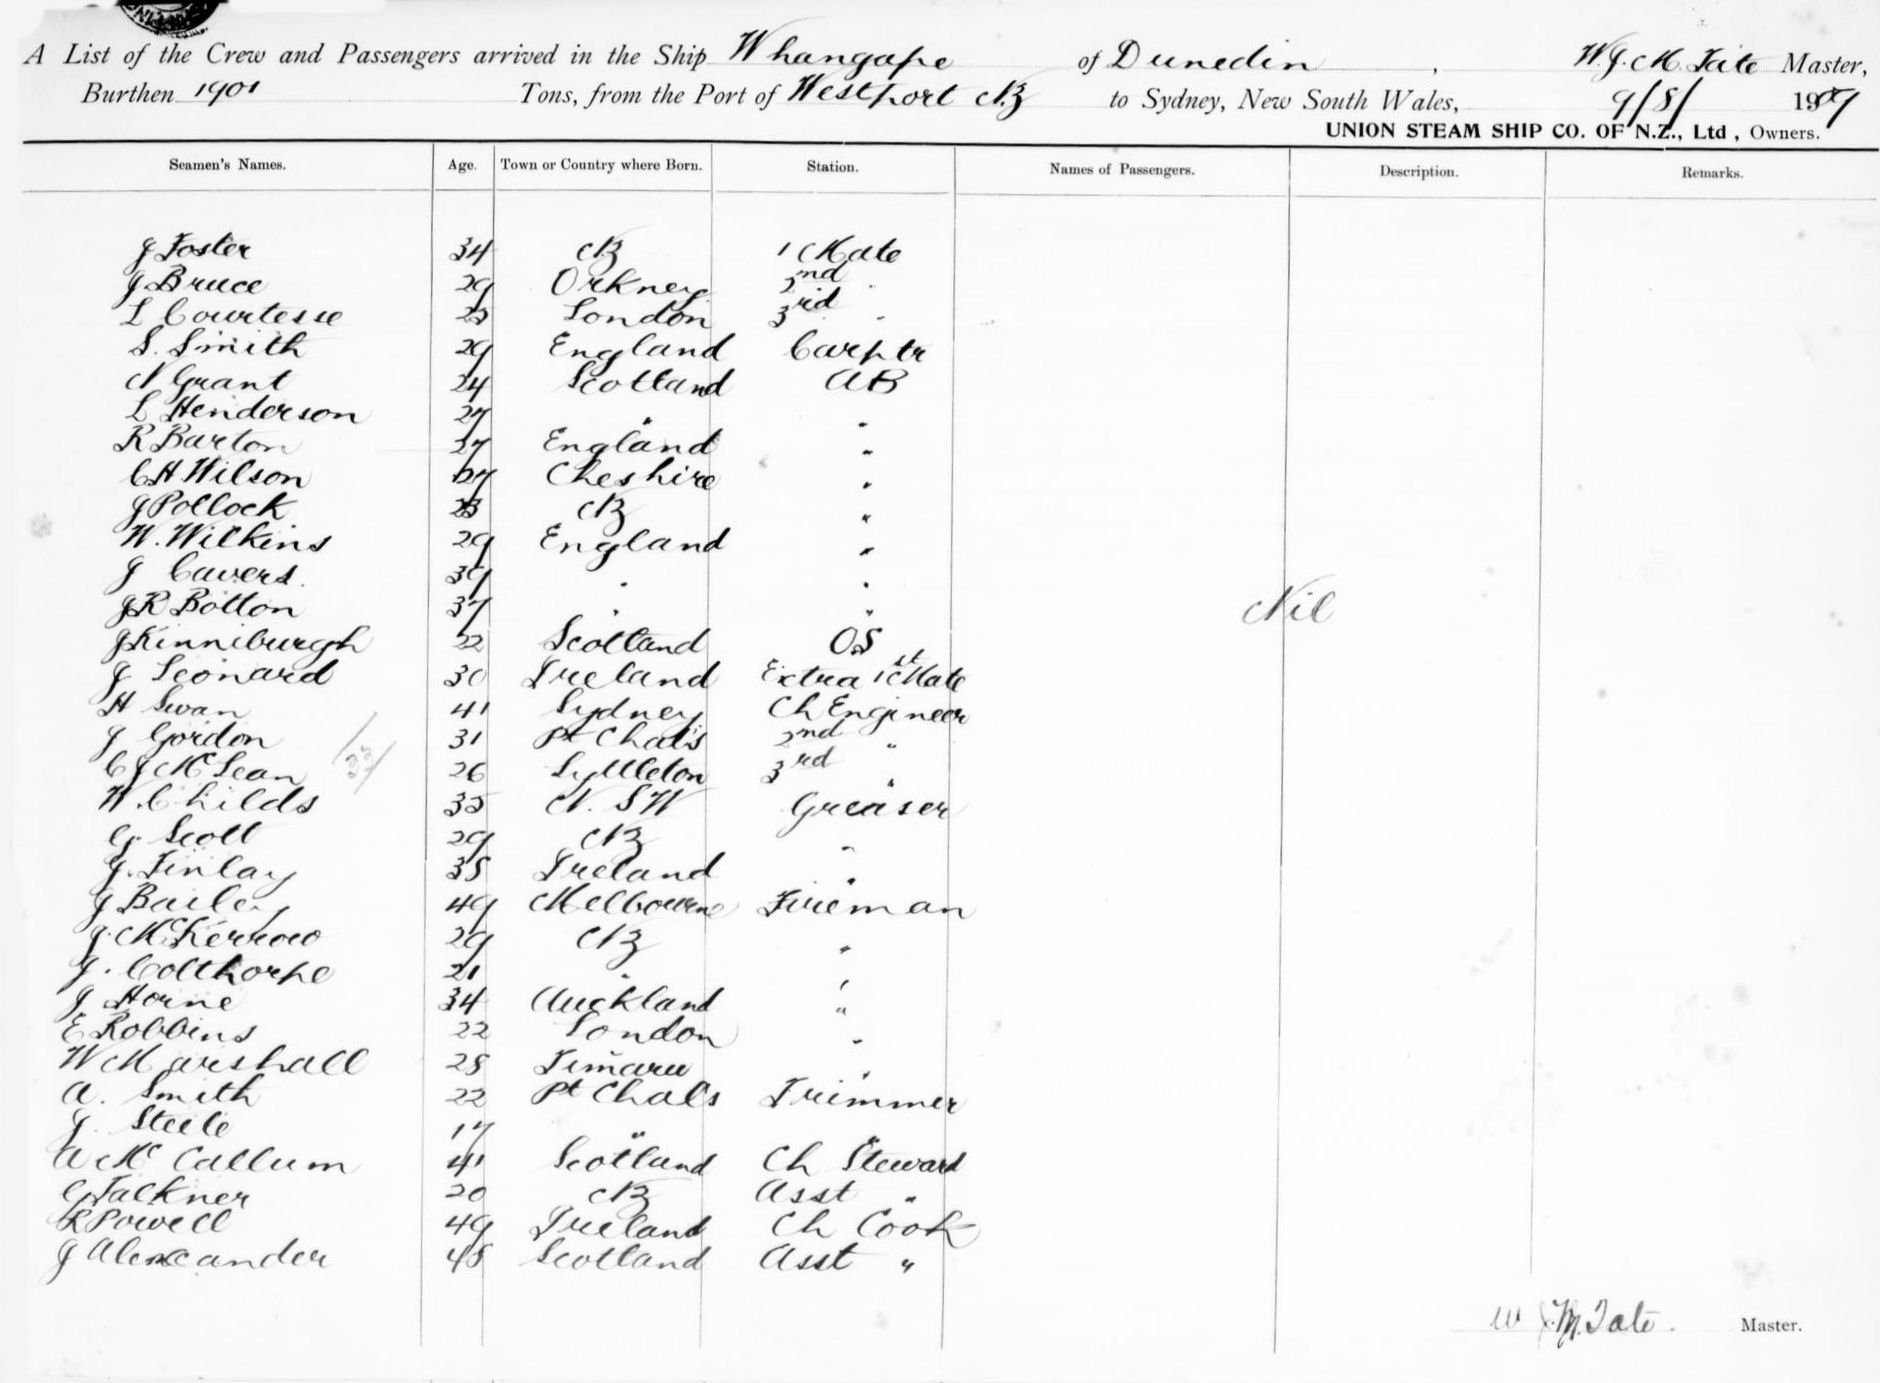 A List of the Crew and Passengers arrived in the Ship Whangape of Dunedin, W. J. M. Tate Master,
Burthen 1901 Tons, from the Port of Westport NZ to Sydney, New South Wales, 9/8/ 1907
UNION STEAM SHIP CO. OF N.Z., Ltd., Owners.
Seamen's Names. Age. Town or Country where Born. Station. Names of Passengers. Description. Remarks.
J Foster 34 NZ 1 Mate
J Bruce 29 Orkney 2nd "
L Courtesse 25 London 3rd "
S. Smith 29 England Carptr
N Grant 24 Scotland AB
L Henderson 27 " "
R Barton 27 England "
C H Wilson 27 Cheshire "
J Pollock 23 NZ "
W. Wilkins 29 England "
J Cavers. 39 " "
J R Bolton 37 " "
Nil
J Kinniburgh 22 Scotland OS
J Leonard 30 Ireland Extra 1st Mate
H Swan 41 Sydney Ch Engineer
J Gordon 31 Pt Chals 2nd "
C J McLean 26 Lyttleton 3rd "
33
W. Childs 35 N. S W Greaser
G. Scott 29 NZ "
J. Finlay 38 Ireland "
J Bailey 49 Melbourne Fireman
J. McKerrow 29 NZ "
J. Colthorpe 21 " "
J Horne 34 Auckland "
E Robbins 22 London "
W Marshall 28 Timaru "
A. Smith 22 Pt Chals Trimmer
J. Steele 17 " "
A McCallum 41 Scotland Ch Steward
G Falkner 20 NZ Asst "
R Powell 49 Ireland Ch Cook
J Alexander 48 Scotland Asst "
W J. M. Tate. Master.